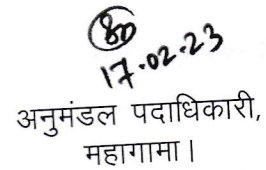 17.02.23
अनुमंडल पदाधिकारी,
महागामा।